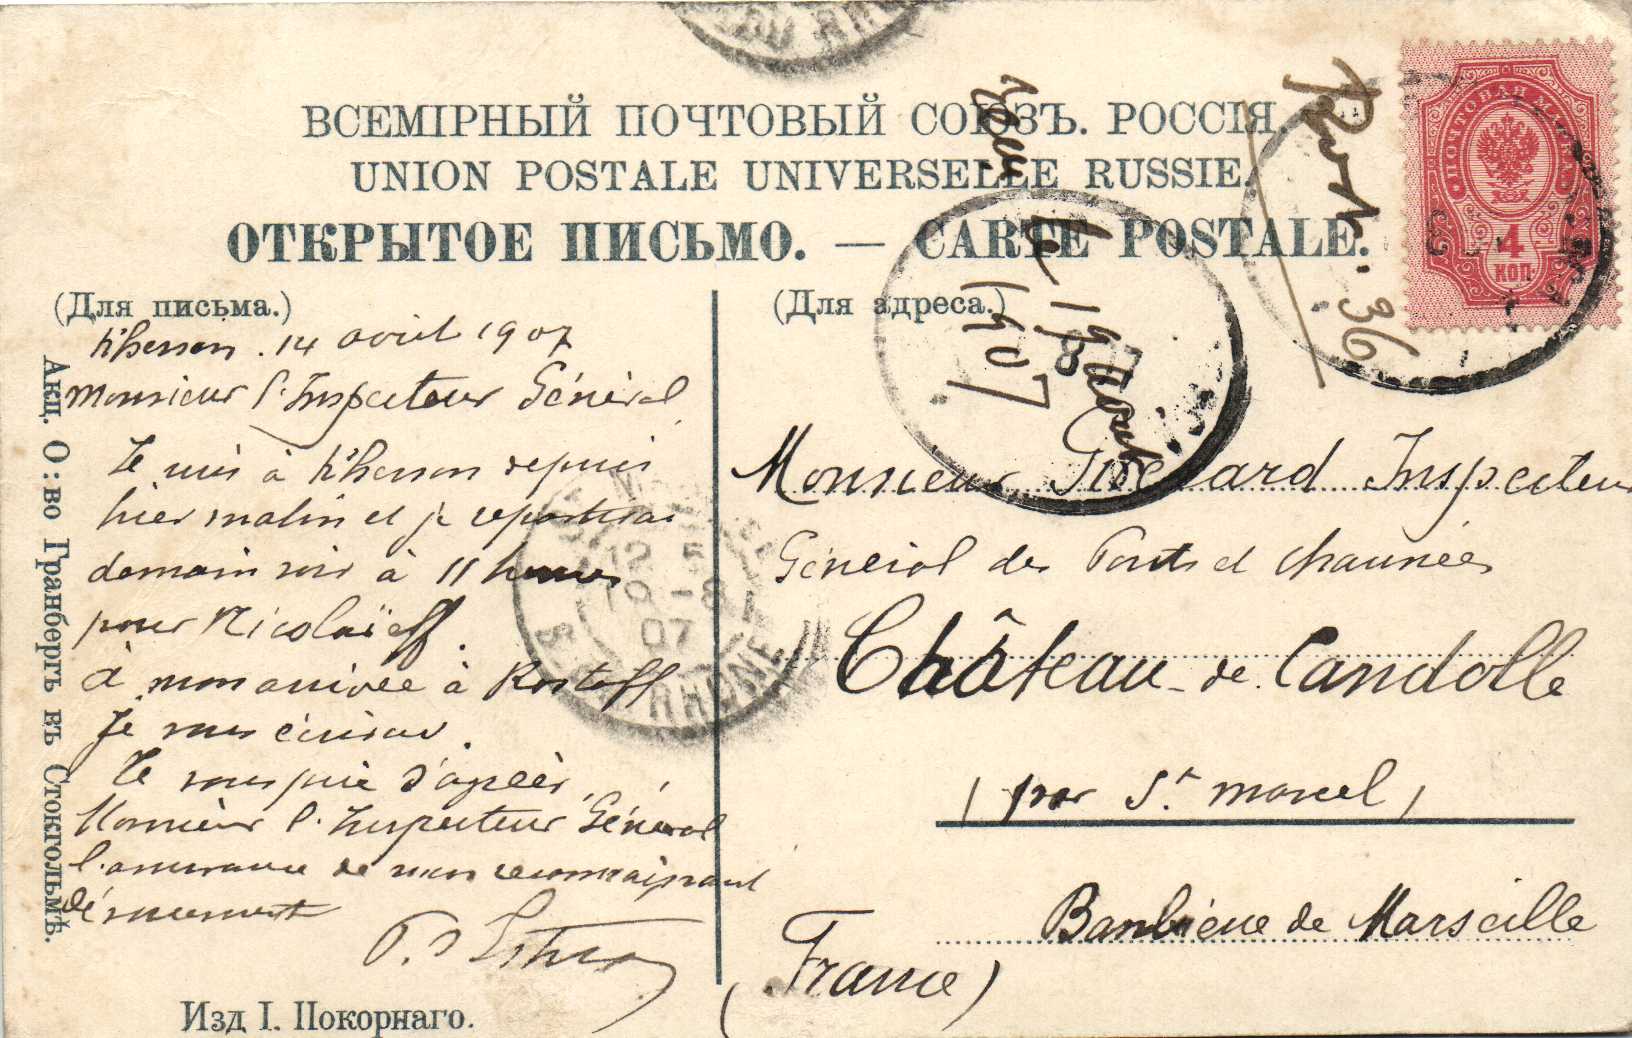 ВСЕМІРНЫЙ ПОЧТОВЫЙ СОЮЗЪ. РОССІЯ
UNION POSTALE UNIVERSELLE RUSSIE.
ОТКРЫТОЕ ПИСЬМО. — CARTE POSTALE.
ПОЧТОВАЯ МАРКА
4
КОП.
36
reçu
le 19 Août
1907
(Для письма.)
Kherson. 14 août 1907
Monsieur l'Inspecteur Général
Je suis à Kherson depuis
hier matin et je repartirai
demain soir à 11 heures
pour Nicolaïeff.
à mon arrivée à Rostoff
Je vous écrirai.
Je vous prie d'agréer,
Monsieur l'Inspecteur Général
l'assurance de mon reconnaissant
dévouement
(Для адреса.)
Monsieur Guérard Inspecteur
Général des Ponts et chaussées
Château de Candolle
(par St. marcel)
Banlieue de Marseille
(France)
12 5
19 - 8
07
RHONE
Акц. О:во Гранбергъ въ Стокгольмѣ.
Изд І. Покорнаго.